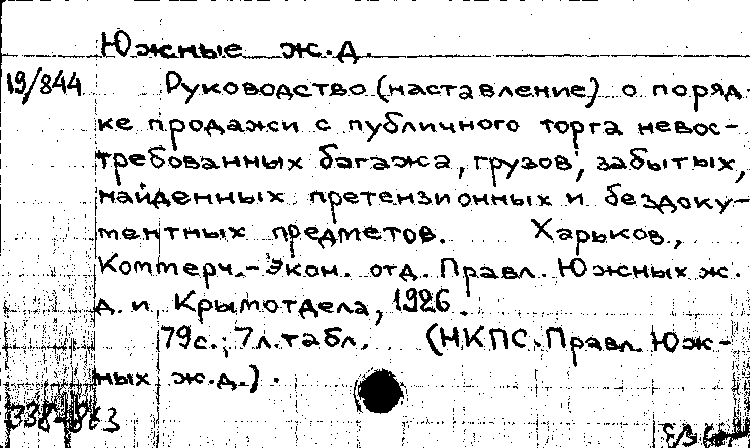 Южные ж.д.
19/844
Руководство (наставление) о поряд-
ке продажи с публичного торга невос-
требованных багажа, грузов, забытых,
найденных претензионных и бездоку-
ментных предметов. Харьков,
Коммерч.-Экон. отд. Правл. Южных ж.
д. и Крымотдела, 1926.
79с.; 7л.табл. (НКПС. Правл. Юж-
ных ж.д.).
338-863